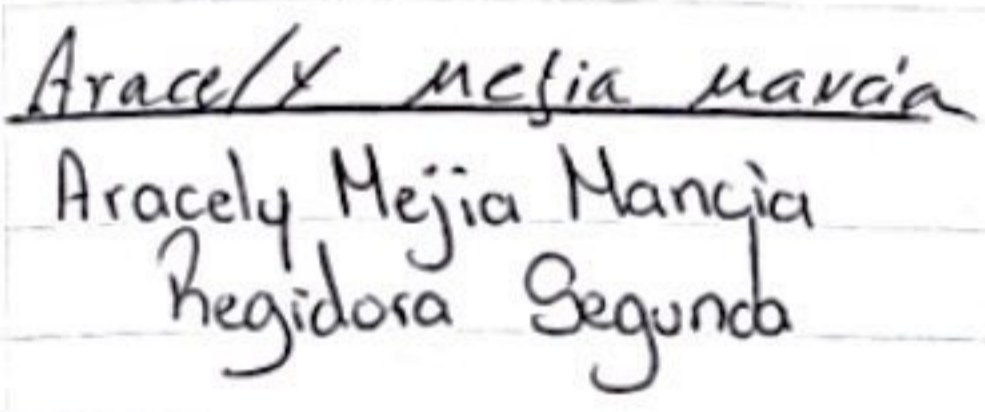 Aracely mejia mancia
Aracely Mejia Mancìa
Regidora Segunda